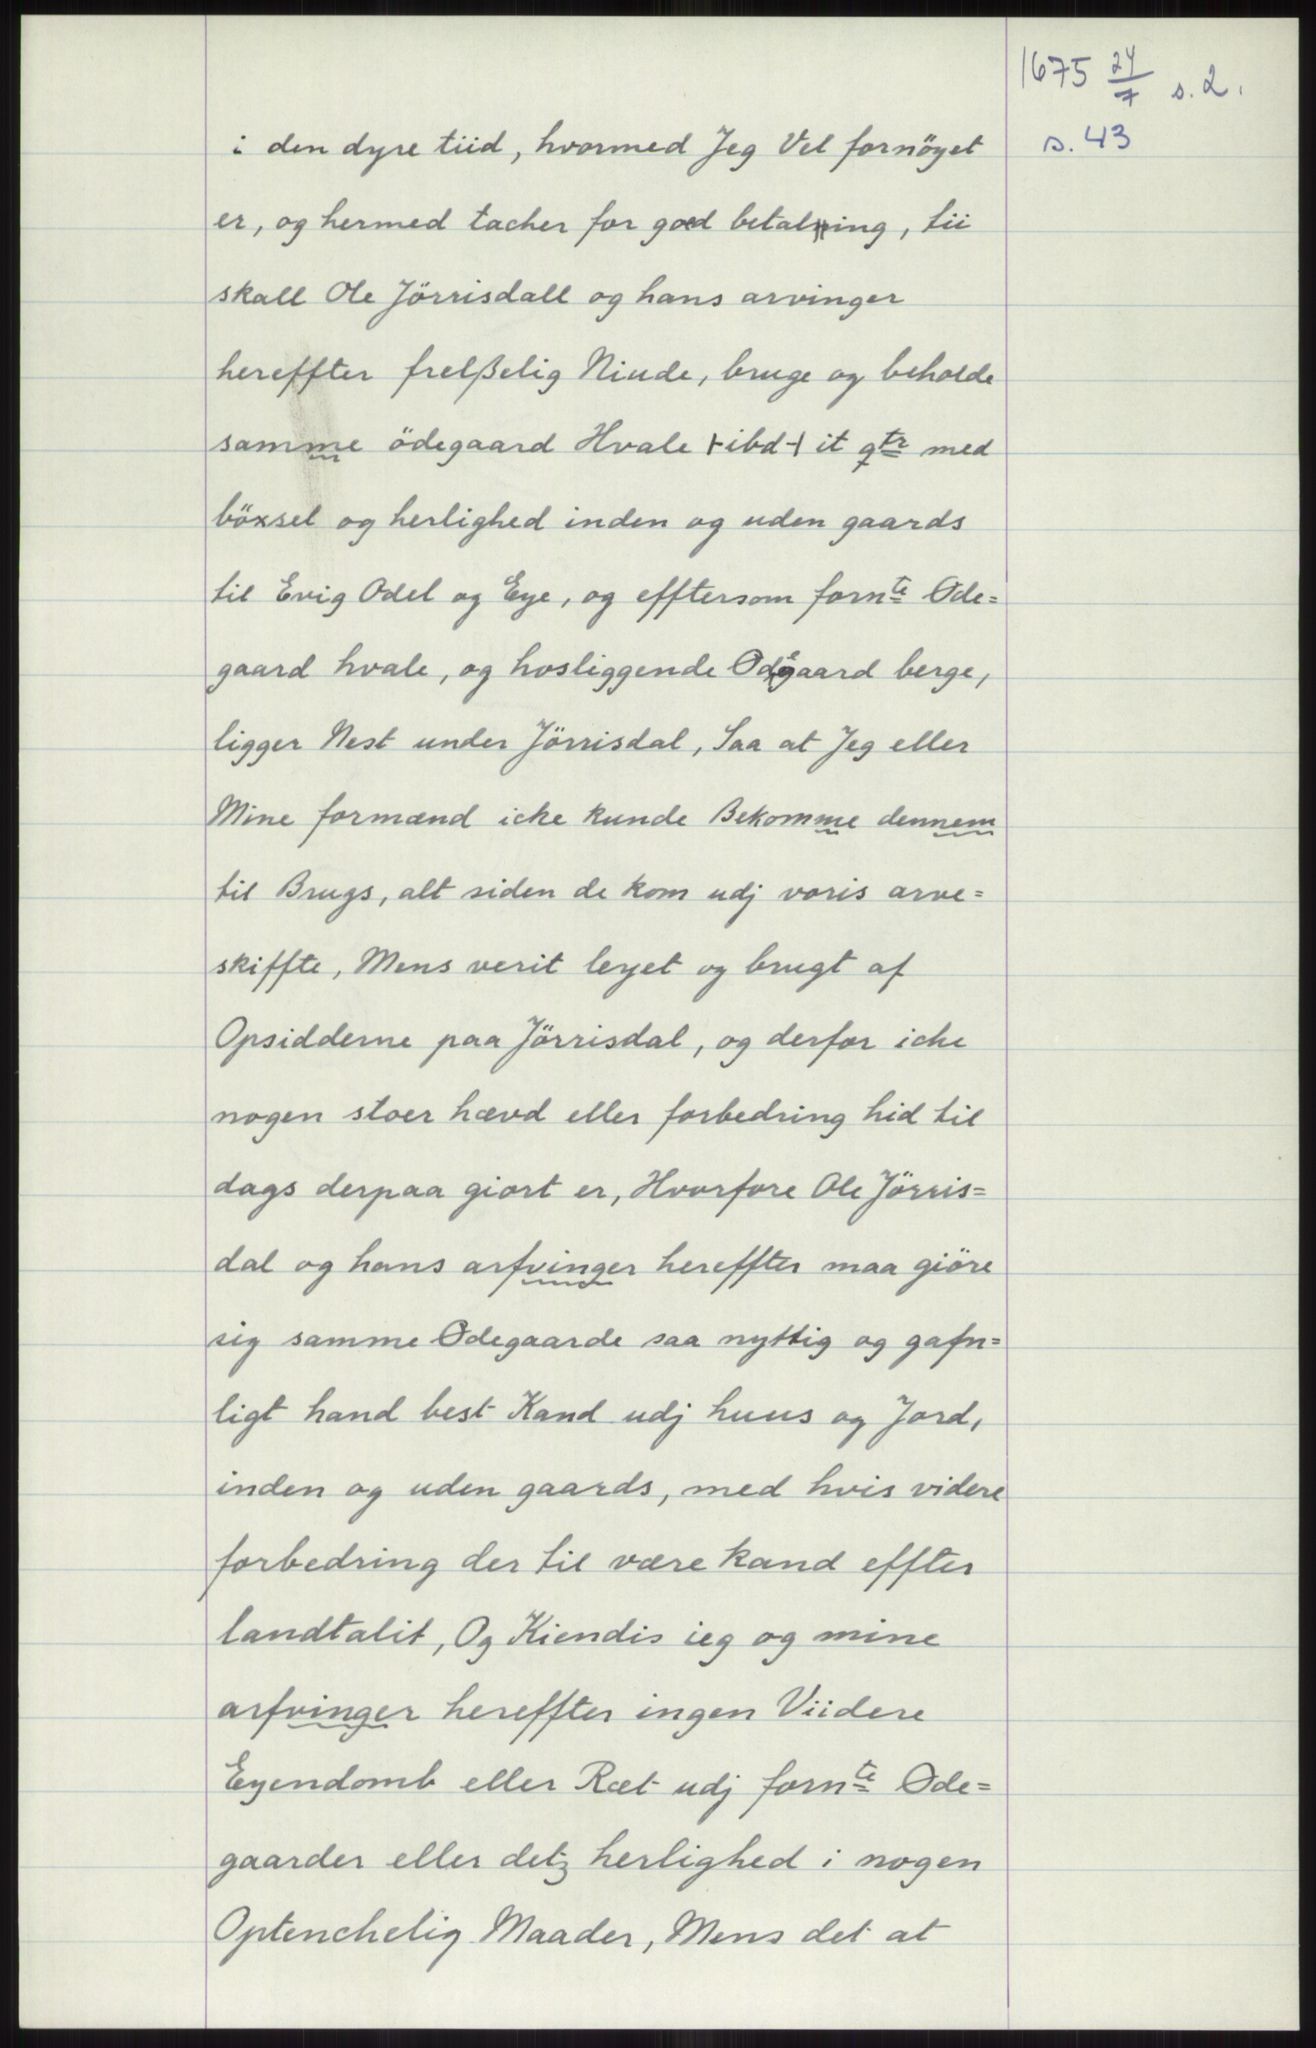 1675 24/7 s. 2.
s. 43
i den dyre tiid, hvormed Jeg Vel fornöyet
er, og hermed tacker for goed betalning, tii
skall Ole Jörrisdall og hans arvinger
hereffter frelßelig Niude, bruge og beholde
samme ödegaard Hvale +ibd+ it qtr med
böxsel og herlighed inden og uden gaards
til Evig Odel og Eye, og efftersom fornte Øde=
gaard hvale, og hosliggende Ødegaard berge,
ligger Nest under Jörrisdal, Saa at Jeg eller
Mine formænd icke kunde Bekomme dennem
til Brugs, alt siden de kom udj voris arve=
skiffte, Mens verit leyet og brugt af
Opsidderne paa Jörrisdal, og derfor icke
nogen stoer hævd eller forbedring hid til
dags derpaa giort er, Hvorfore Ole Jörris=
dal og hans arfvinger hereffter maa giöre
sig samme Ødegaarde saa nyttig og gafn=
ligt hand best Kand udj huus og Jord,
inden og uden gaards, med hvis videre
forbedring der til være kand effter
landtalit, Og Kiendis ieg og mine
arfvinger hereffter ingen Viidere
Eyendomb eller Ræt udj fornte Øde=
gaarder eller detz herlighed i nogen
Optenckelig Maader, Mens det at